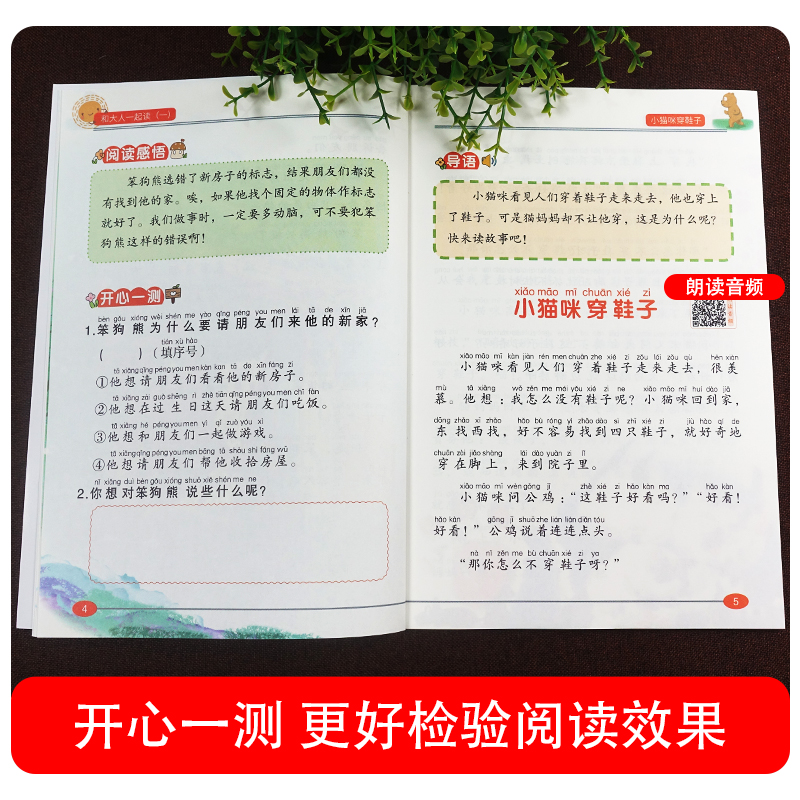 和大人一起读（一）
阅读感悟
笨狗熊选错了新房子的标志，结果朋友们都没
有找到他的家。唉，如果他找个固定的物体作标志
就好了。我们做事时，一定要多动脑，可不要犯笨
狗熊这样的错误啊！
开心一测
bèn gǒu xióng wèi shén me yào qǐng péng you men lái tā de xīn jiā
1.笨狗熊为什么要请朋友们来他的新家？
tián xù hào
（ ）（填序号）
tā xiǎng qǐng péng you men kàn kan tā de xīn fáng zi
①他想请朋友们看看他的新房子。
tā xiǎng zài guò shēng rì zhè tiān qǐng péng you men chī fàn
②他想在过生日这天请朋友们吃饭。
tā xiǎng hé péng you men yì qǐ zuò yóu xì
③他想和朋友们一起做游戏。
tā xiǎng qǐng péng you men bāng tā shōu shi fáng wū
④他想请朋友们帮他收拾房屋。
nǐ xiǎng duì bèn gǒu xióng shuō xiē shén me ne
2.你想对笨狗熊说些什么呢？
4
小猫咪穿鞋子
导语
小猫咪看见人们穿着鞋子走来走去，他也穿上
了鞋子。可是猫妈妈却不让他穿，这是为什么呢？
快来读故事吧！
朗读音频
xiǎo māo mī chuān xié zi
小猫咪穿鞋子
xiǎo māo mī kàn jiàn rén men chuān zhe xié zi zǒu lái zǒu qù hěn xiàn
小猫咪看见人们穿着鞋子走来走去，很羡
mù tā xiǎng wǒ zěn me méi yǒu xié zi ne xiǎo māo mī huí dào jiā
慕。他想：我怎么没有鞋子呢？小猫咪回到家，
dōng zhǎo xī zhǎo hǎo bù róng yì zhǎo dào sì zhī xié zi jiù hào qí de
东找西找，好不容易找到四只鞋子，就好奇地
chuān zài jiǎo shàng lái dào yuàn zi lǐ
穿在脚上，来到院子里。
xiǎo māo mī wèn gōng jī zhè xié zi hǎo kàn ma hǎo kàn
小猫咪问公鸡：“这鞋子好看吗？”“好看！
hǎo kàn gōng jī shuō zhe lián lián diǎn tóu
好看！”公鸡说着连连点头。
nà nǐ zěn me bù chuān xié zi ya
“那你怎么不穿鞋子呀？”
5
开心一测 更好检验阅读效果